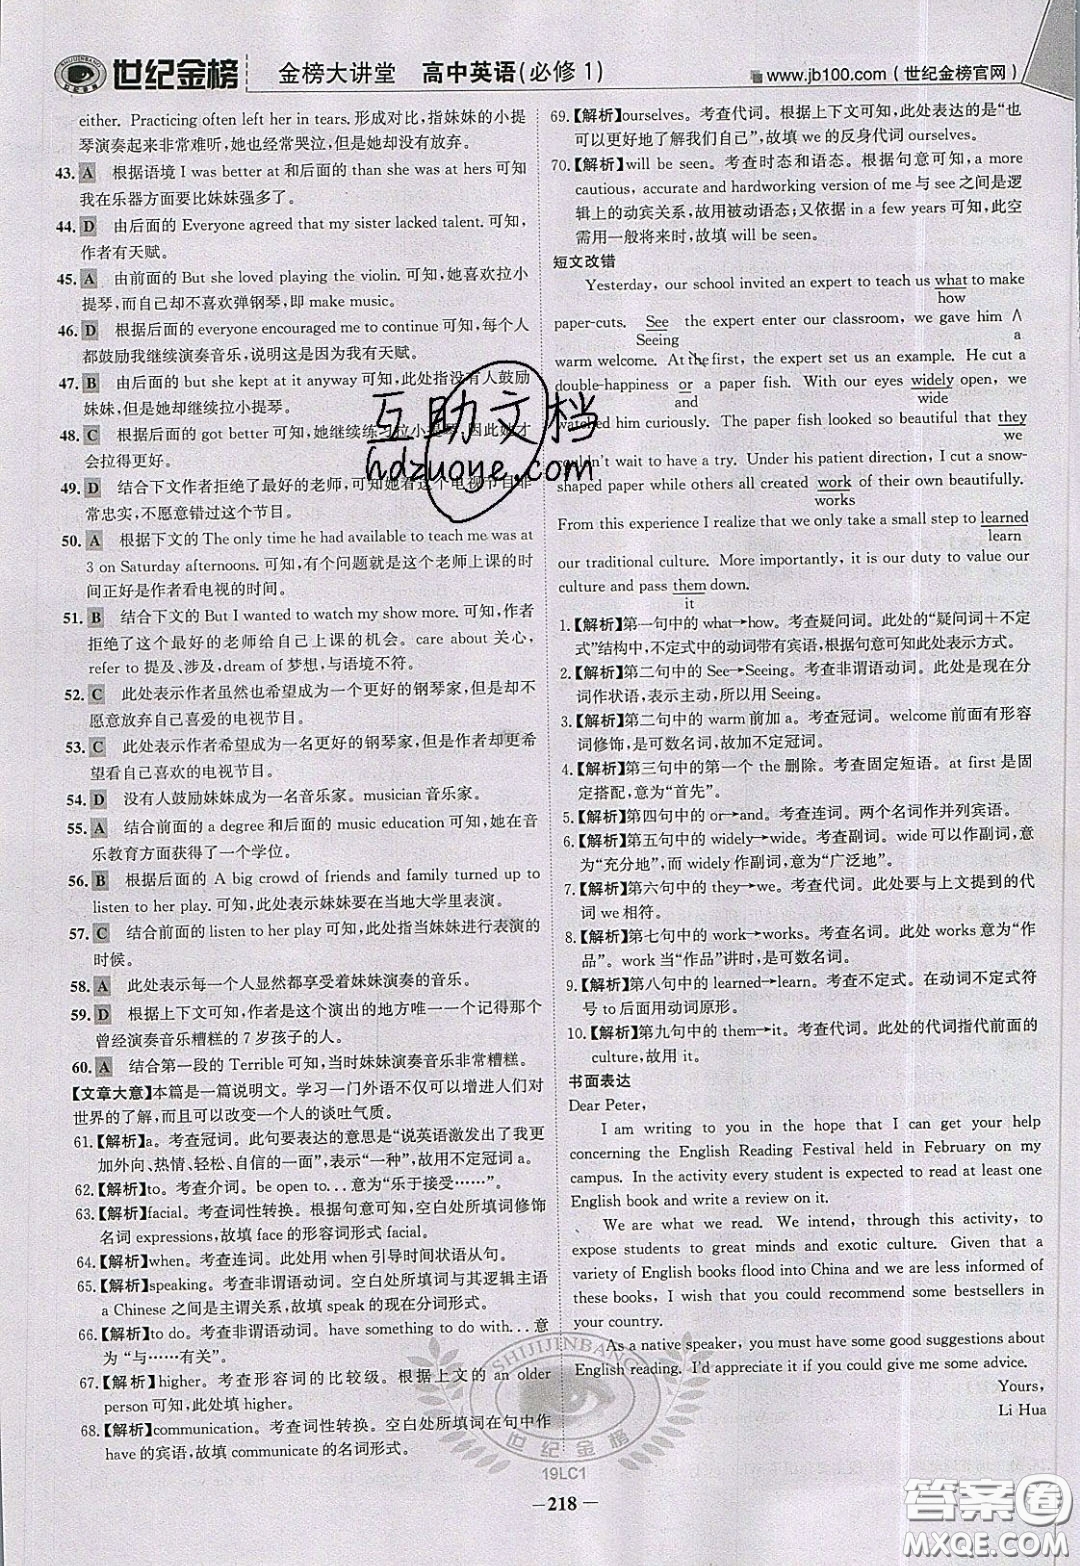 世纪金榜 金榜大讲堂 高中英语(必修1) www.jb100.com(世纪金榜官网)
either. Practicing often left her in tears.形成对比,指妹妹的小提
琴演奏起来非常难听,她也经常哭泣,但是她却没有放弃。
43. A 根据语境 I was better at 和后面的 than she was at hers 可知
我在乐器方面要比妹妹强多了。
44. D 由后面的 Everyone agreed that my sister lacked talent. 可知,
作者有天赋。
45. A 由前面的 But she loved playing the violin. 可知,她喜欢拉小
提琴,而自己却不喜欢弹钢琴,即 make music。
46. D 根据后面的 everyone encouraged me to continue 可知,每个人
都鼓励我继续演奏音乐,说明这是因为我有天赋。
47. B 由后面的 but she kept at it anyway 可知,此处指没有人鼓励
妹妹,但是她却继续拉小提琴。
48. C 根据后面的 got better 可知,她继续练习拉小提琴,因此她才
会拉得更好。
49. D 结合下文作者拒绝了最好的老师,可知她看这个电视节目非
常忠实,不愿意错过这个节目。
50. A 根据下文的 The only time he had available to teach me was at
3 on Saturday afternoons. 可知,有个问题就是这个老师上课的时
间正好是作者看电视的时间。
51. B 结合下文的 But I wanted to watch my show more. 可知,作者
拒绝了这个最好的老师给自己上课的机会。care about 关心,
refer to 提及、涉及,dream of 梦想,与语境不符。
52. C 此处表示作者虽然也希望成为一个更好的钢琴家,但是却不
愿意放弃自己喜爱的电视节目。
53. C 此处表示作者希望成为一名更好的钢琴家,但是却更希
望看自己喜欢的电视节目。
54. D 没有人鼓励妹妹成为一名音乐家。musician 音乐家。
55. A 结合前面的 a degree 和后面的 music education 可知,她在音
乐教育方面获得了一个学位。
56. B 根据后面的 A big crowd of friends and family turned up to
listen to her play. 可知,此处表示妹妹要在当地大学里表演。
57. C 结合前面的 listen to her play 可知,此处指当妹妹进行表演的
时候。
58. A 此处指每一个人显然都享受着妹妹演奏的音乐。
59. D 根据上下文可知,作者是这个演出的地方唯一一个记得那个
曾经演奏音乐糟糕的7岁孩子的人。
60. A 结合第一段的 Terrible 可知,当时妹妹演奏音乐非常糟糕。
【文章大意】本篇是一篇说明文。学习一门外语不仅可以增进人们对
世界的了解,而且可以改变一个人的谈吐气质。
61.【解析】a。考查冠词。此句要表达的意思是“说英语激发出了我更
加外向、热情、轻松、自信的一面”,表示“一种”,故用不定冠词 a。
62.【解析】to。考查介词。be open to... 意为“乐于接受……”。
63.【解析】facial。考查词性转换。根据句意可知,空白处所填词修饰
名词 expressions,故填 face 的形容词形式 facial。
64.【解析】when。考查连词。此处用 when 引导时间状语从句。
65.【解析】speaking。考查非谓语动词。空白处所填词与其逻辑主语
a Chinese 之间是主谓关系,故填 speak 的现在分词形式。
66.【解析】to do。考查非谓语动词。have something to do with... 意
为“与……有关”。
67.【解析】higher。考查形容词的比较级。根据上文的 an older
person 可知,此处填 higher。
68.【解析】communication。考查词性转换。空白处所填词在句中作
have 的宾语,故填 communicate 的名词形式。
69.【解析】ourselves。考查代词。根据上下文可知,此处表达的是“也
可以更好地了解我们自己”,故填 we 的反身代词 ourselves。
70.【解析】will be seen。考查时态和语态。根据句意可知,a more
cautious, accurate and hardworking version of me 与 see 之间是逻
辑上的动宾关系,故用被动语态;又依据 in a few years 可知,此空
需用一般将来时,故填 will be seen。
短文改错
Yesterday, our school invited an expert to teach us what to make
how
paper-cuts. See the expert enter our classroom, we gave him ∧
Seeing a
warm welcome. At the first, the expert set us an example. He cut a
double-happiness or a paper fish. With our eyes widely open, we
and wide
watched him curiously. The paper fish looked so beautiful that they
we
couldn't wait to have a try. Under his patient direction, I cut a snow-
shaped paper while others all created work of their own beautifully.
works
From this experience I realize that we only take a small step to learned
learn
our traditional culture. More importantly, it is our duty to value our
culture and pass them down.
it
1.【解析】第一句中的 what→how。考查疑问词。此处的“疑问词+不定
式”结构中,不定式中的动词带有宾语,根据句意可知此处表示方式。
2.【解析】第二句中的 See→Seeing。考查非谓语动词。此处是现在分
词作状语,表示主动,所以用 Seeing。
3.【解析】第二句中的 warm 前加 a。考查冠词。welcome 前面有形容
词修饰,是可数名词,故加不定冠词。
4.【解析】第三句中的第一个 the 删除。考查固定短语。at first 是固
定搭配,意为“首先”。
5.【解析】第四句中的 or→and。考查连词。两个名词作并列宾语。
6.【解析】第五句中的 widely→wide。考查副词。wide 可以作副词,意
为“充分地”,而 widely 作副词,意为“广泛地”。
7.【解析】第六句中的 they→we。考查代词。此处要与上文提到的代
词 we 相符。
8.【解析】第七句中的 work→works。考查名词。此处 works 意为“作
品”。work 当“作品”讲时,是可数名词。
9.【解析】第八句中的 learned→learn。考查不定式。在动词不定式符
号 to 后面用动词原形。
10.【解析】第九句中的 them→it。考查代词。此处的代词指代前面的
culture,故用 it。
书面表达
Dear Peter,
I am writing to you in the hope that I can get your help
concerning the English Reading Festival held in February on my
campus. In the activity every student is expected to read at least one
English book and write a review on it.
We are what we read. We intend, through this activity, to
expose students to great minds and exotic culture. Given that a
variety of English books flood into China and we are less informed of
these books, I wish that you could recommend some bestsellers in
your country.
As a native speaker, you must have some good suggestions about
English reading. I'd appreciate it if you could give me some advice.
Yours,
Li Hua
互助文档
hdzuoye.com
SHIJIJINBANG
世纪金榜
19LC1
— 218 —
答案卷
MXQE.COM